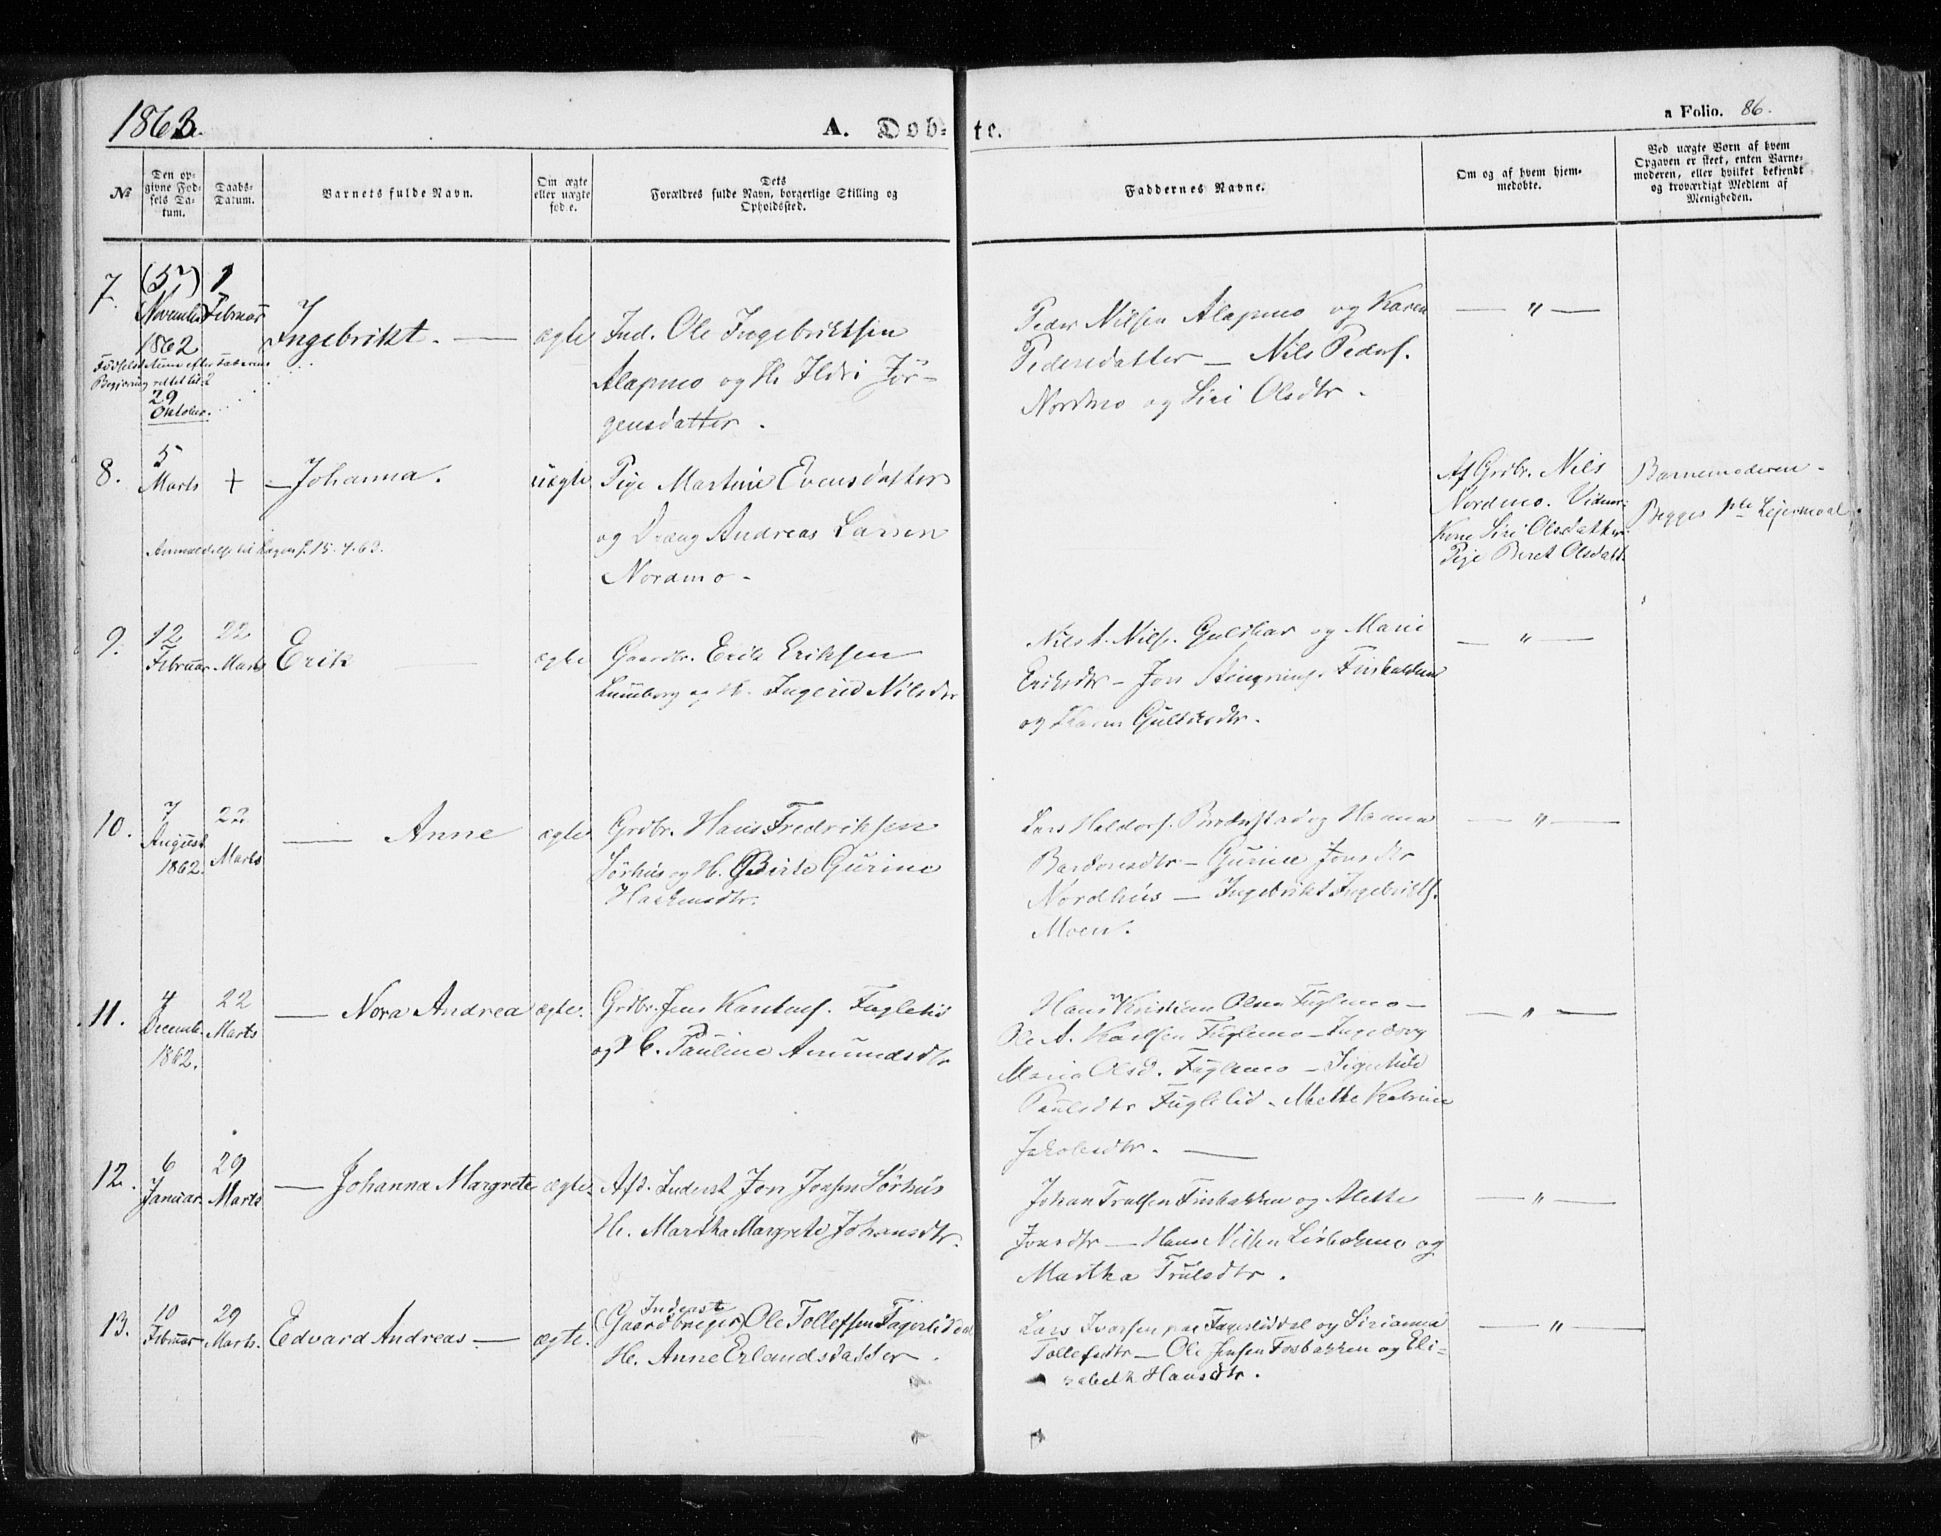 1863.
A. Døb-
te.
a Folio. 86.
No
Den op-
givne Fød-
sels Da-
tum.
Daabs-
Datum.
Barnets fulde Navn.
Om ægte
eller uægte
fød.e.
Dets
Forældres fulde Navn, borgerlige Stilling og
Opholdssted.
Faddernes Navne.
Om og af hvem hjem-
medøbte.
Ved uægte Børn af hvem
Opgaven er skeet, enten Barne-
moderen, eller hvilket bekjendt
og troværdigt Medlem af
Menigheden.
7.
(5?)
November
1862
29
Oktober.
1
Februar
Ingebrikt. —
ægte
Ind. Ole Ingebriktsen
Alapmo og H. Ildri Jør-
gensdatter.
Peder Nilsen Alapmo og Karen
Pedersdatter — Nils Peders.
Nordmo og Siri Olsdtr.
— " —
8.
5
Marts
+
— Johanna.
uægte
Pige Martine Evensdatter
og Dreng Andreas Larsen
Nordmo -
Af Grdbr. Nils
Nordmo. Vidner:
Kone Siri Olsdatter
Pige Beret Olsdatt.
Barnemoderen -
Begges 1ste Lejermaal.
15-4-63.
9.
12
Februar
22
Marts
Erik —
ægte
Gaardbr. Erik Eriksen
Lundberg og H. Ingerid Nilsdtr
Nils A. Nils. Guldhav og Marie
Eriksdtr — Jon
og Karen
— " —
10.
7
August
1862.
22
Marts
— Anne
ægte
Grdbr. Hans Fredriksen
Sørhus og H. Birte Gurine
Haakensdtr.
Lars Haldors. og Hanna
Bardonsdtr — Gurine Jonsdtr
Nordhus — Ingebrikt Ingebrikts.
Moen.
— " —
11.
4
Decemb.
1862.
22
Marts
— Nora Andrea
ægte.
Grdbr. Jens Fuglelid
og H. Pauline Amundsdtr
Hans Kristian Olsen Fuglemo —
Ole A. Karlsen Fuglemo — Ingeborg
Maria Olsd. Fuglemo —
Paulsdtr Fuglelid - Mette Katrine
Jakobsdtr. —
— " —
12.
6
Januar
29
Marts
— Johanna Margrete
ægte.
Afd. Inderst Jon Jonsen Sørhus
H. Martha Margrete Johansdtr.
Johan Trulsen Finbakken og Alette
Jonsdtr — Hans Nilsen og
Martha Trulsdtr.
— " —
13.
10
Februar
29
Marts.
Edvard Andreas —
ægte.
Inderst
(Gaardbruger) Ole Tollefsen Fagerliddal
H. Anne Erlandsdatter.
Lars Ivarsen paa Fagerliddal og Sirianna
Tollefsdtr — Ole Jensen Fosbakken og Eli-
sabeth Hansdtr.
— " —